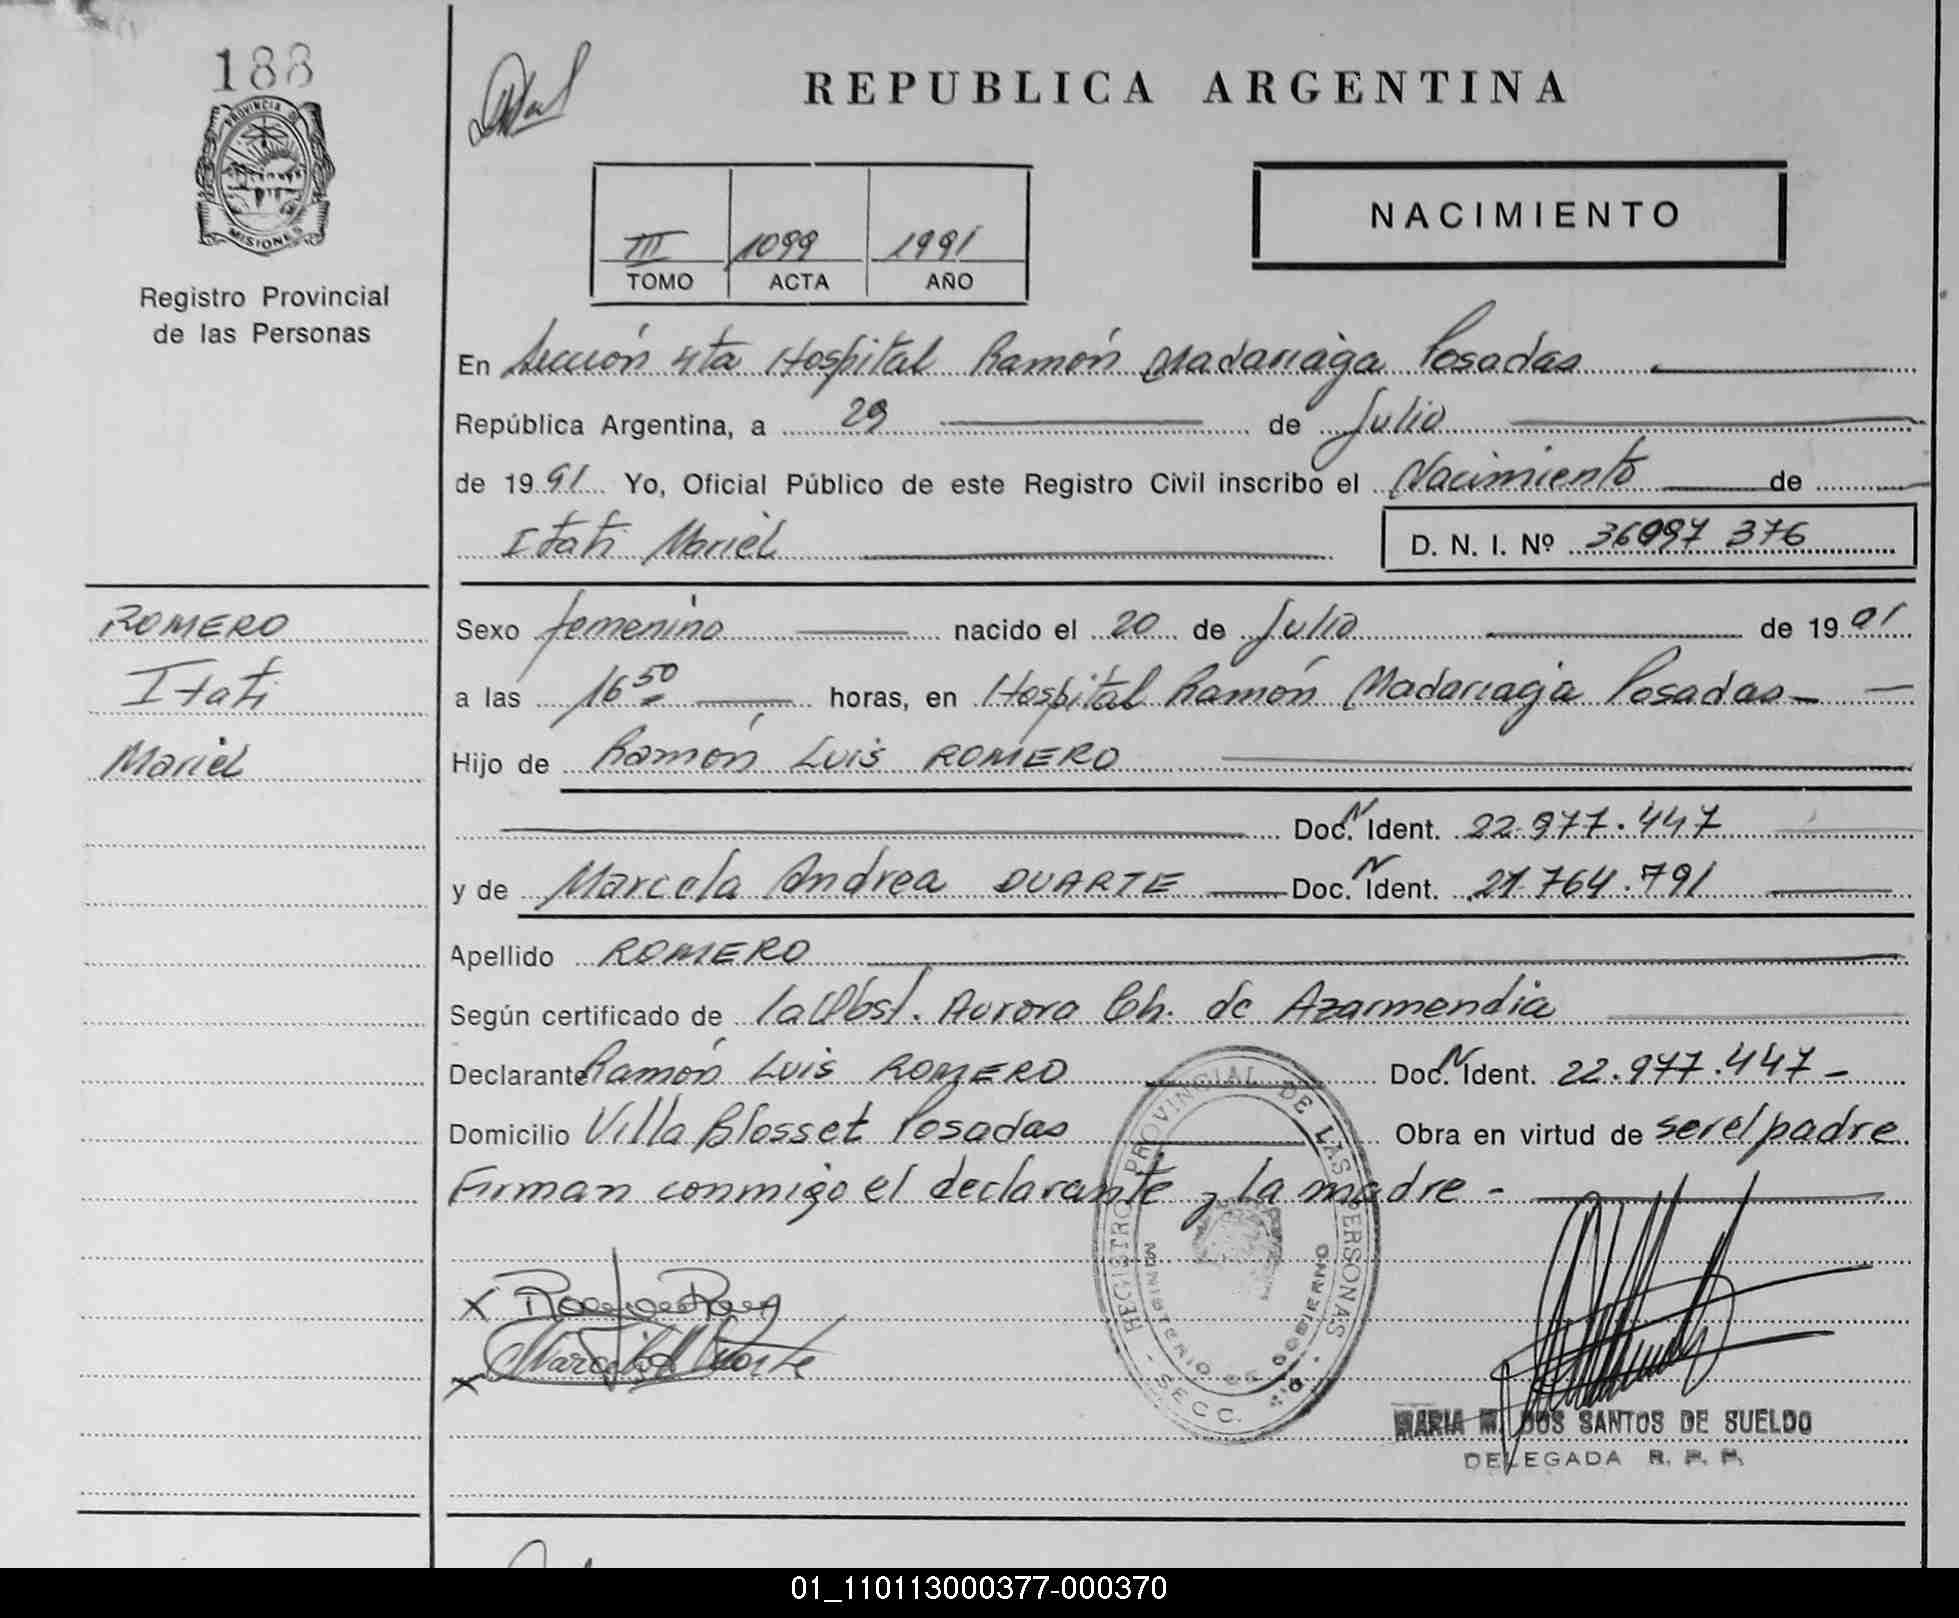 188
PROVINCIA DE
MISIONES
Registro Provincial
de las Personas
REPUBLICA ARGENTINA
III 1099 1991
TOMO ACTA AÑO
NACIMIENTO
En Sección 4ta Hospital Ramón Madariaga Posadas
República Argentina, a 29 de Julio
de 1991 Yo, Oficial Público de este Registro Civil inscribo el Nacimiento de
Itati Mariel D. N. I. Nº 36097 376
ROMERO
Itati
Mariel
Sexo femenino nacido el 20 de Julio de 1991
a las 16 50 horas, en Hospital Ramón Madariaga Posadas
Hijo de Ramón Luis ROMERO
Doc. N Ident. 22.977.447
y de Marcela Andrea DUARTE Doc. N Ident. 21.764.791
Apellido ROMERO
Según certificado de la Obst. Aurora Ch. de Azarmendia
Declarante Ramón Luis ROMERO Doc. N Ident. 22.977.447-
Domicilio Villa Blosset Posadas Obra en virtud de ser el padre
Firman conmigo el declarante y la madre-
REGISTRO PROVINCIAL DE LAS PERSONAS
MINISTERIO DE GOBIERNO
SECC.
MARIA M. DOS SANTOS DE SUELDO
DELEGADA R. P. P.
01_110113000377-000370